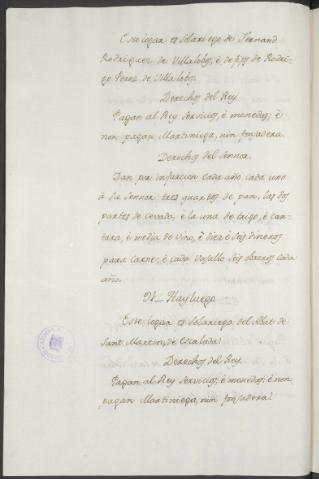 Este logar es Solariego de Fernand
Rodriguez de Villalobos, é de fijos de Rodri-
go Perez de Villalobos.
Derechos del Rey
Pagan al Rey Servicios, é monedas, é
non pagan Martiniega, nin fonsadera.
Derechos del Sennor.
Dan por infurcion cada año cada uno
á su Sennor tres quartos de pan, las dos
partes de cevada, é la una de trigo, é cán-
tara, é media de vino, é diez é seis dineros
para carne, é cada Vasallo seis obreros cada
año.
Nayluego
Este logar es Solariego del Abat de
Sant Martin, de Escalada.
Derechos del Rey.
Pagan al Rey Servicios, é monedas, é non
pagan Martiniega, nin fonsadera.